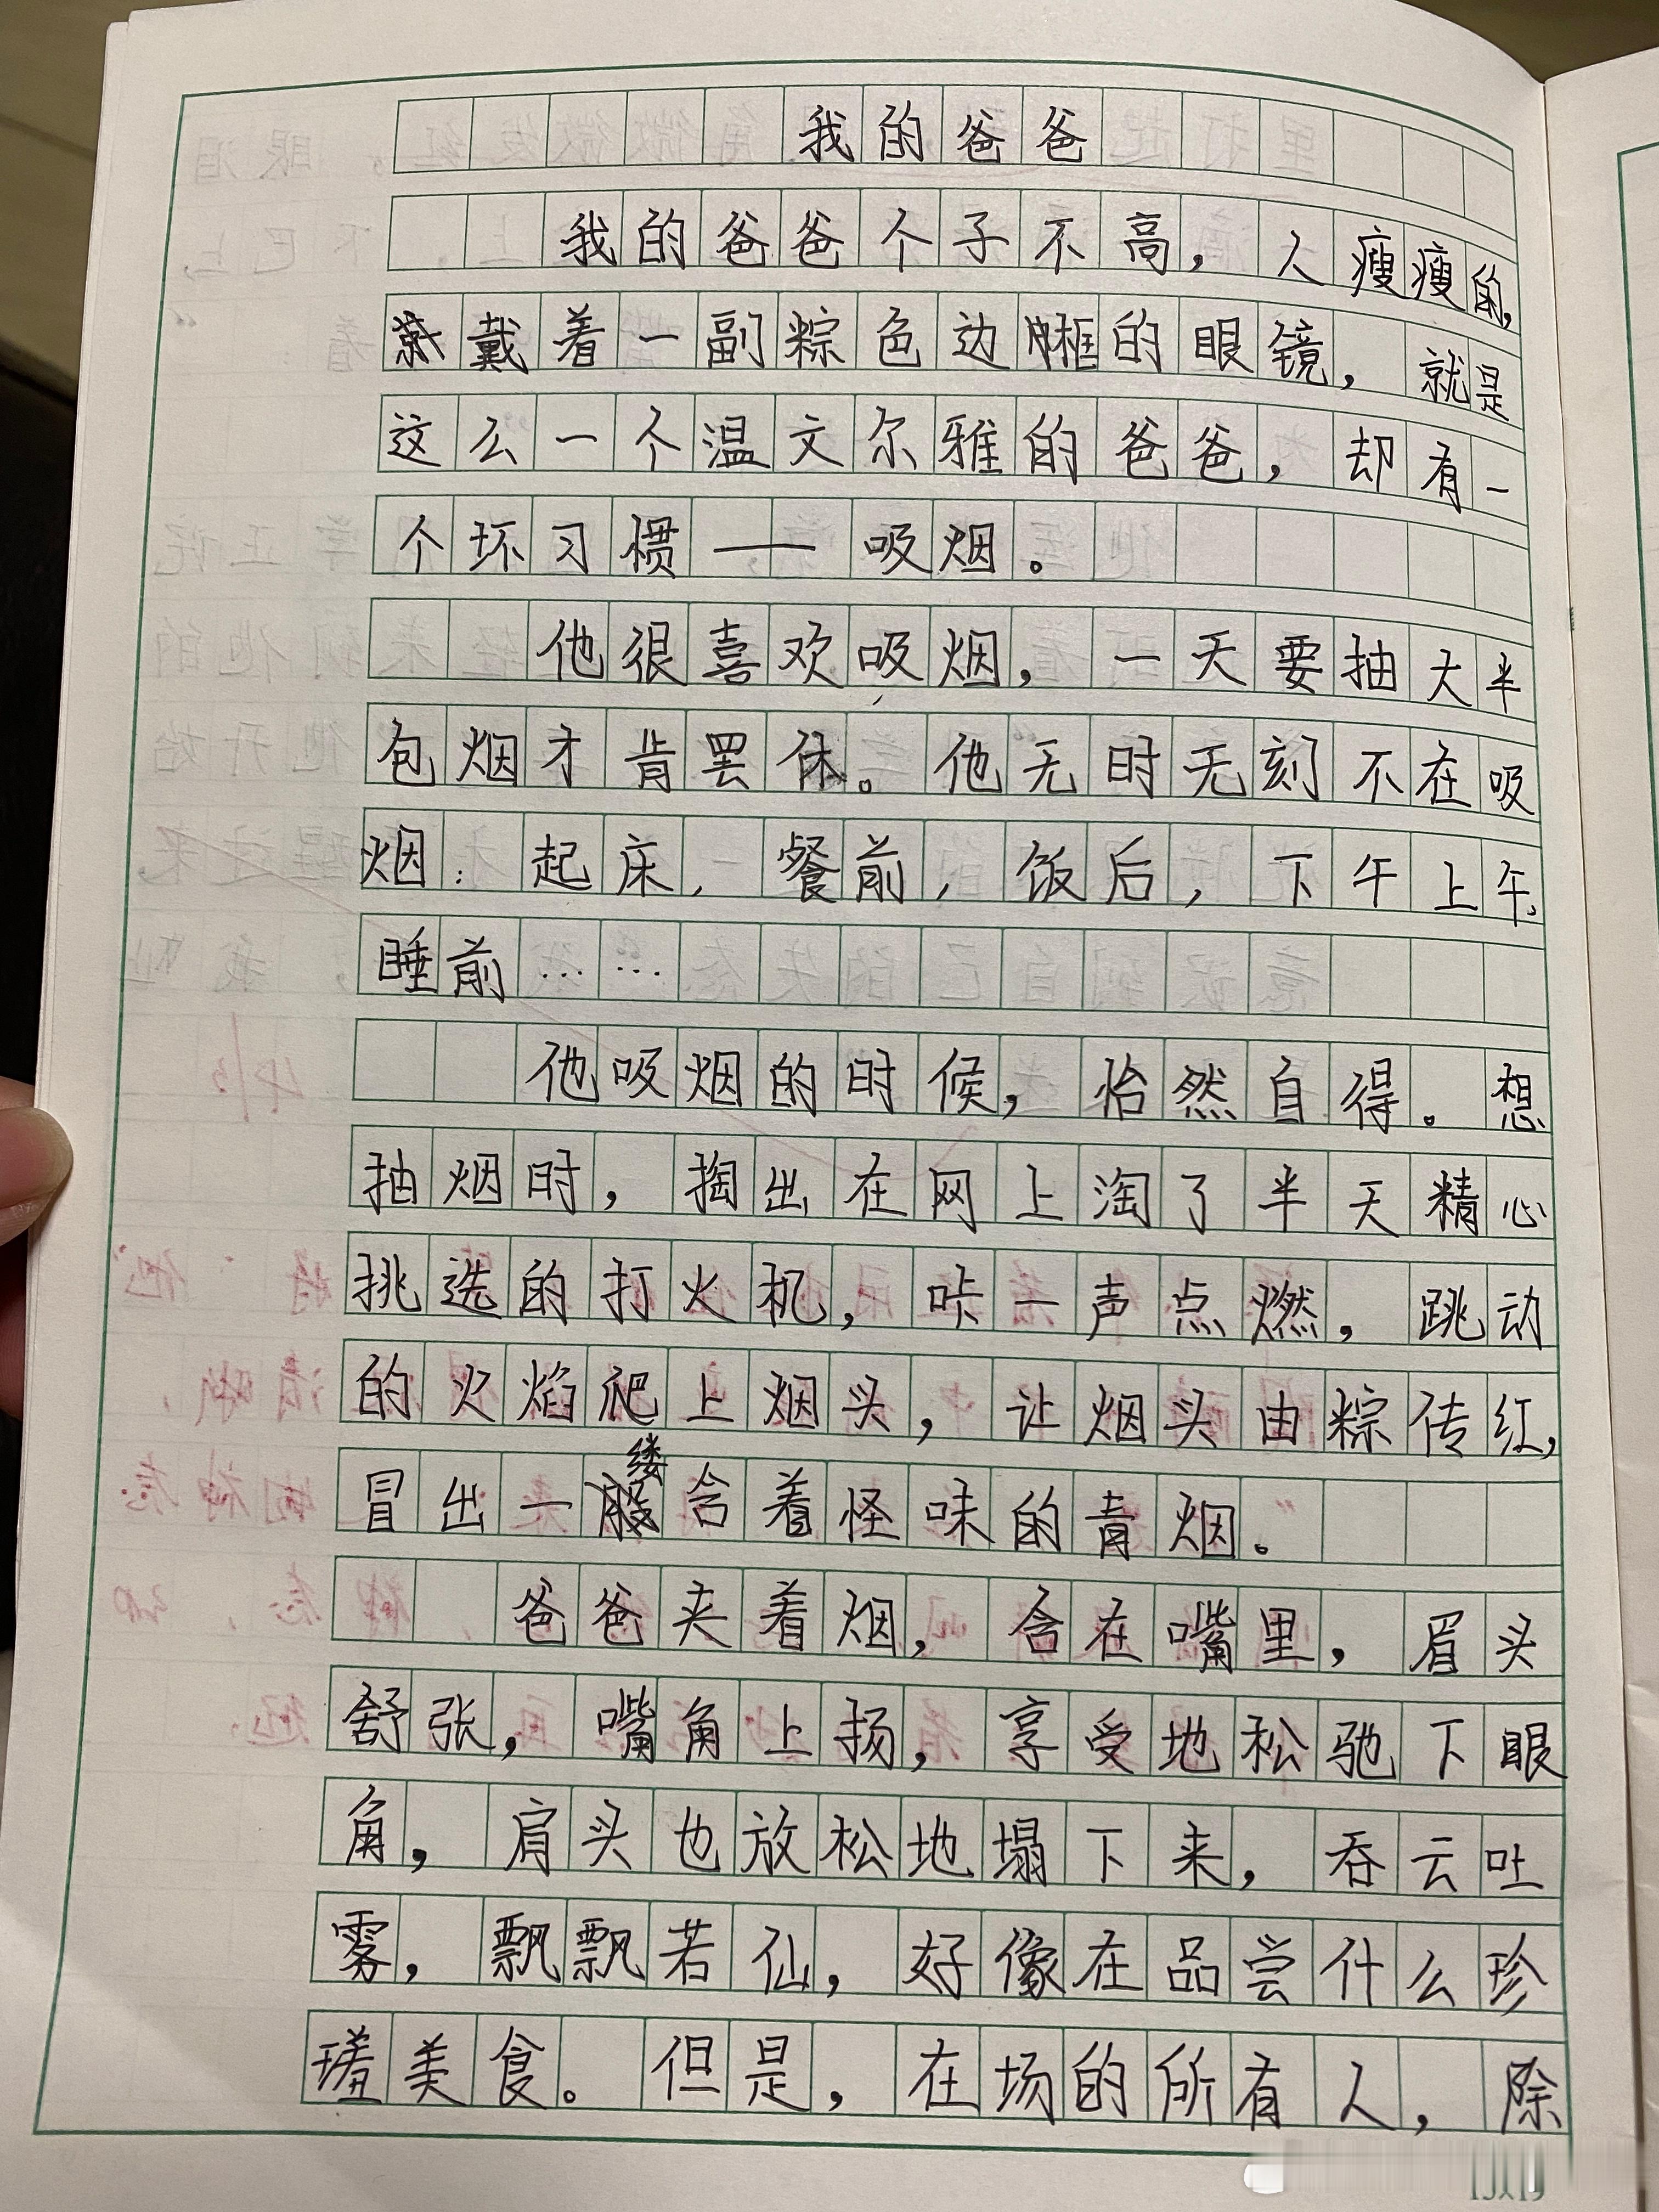 我的爸爸
我的爸爸个子不高，人瘦瘦的，
戴着一副粽色边框的眼镜，就是
这么一个温文尔雅的爸爸，却有一
个坏习惯——吸烟。
他很喜欢吸烟，一天要抽大半
包烟才肯罢休。他无时无刻不在吸
烟：起床，餐前，饭后，下午上午，
睡前……
他吸烟的时候，怡然自得。想
抽烟时，掏出在网上淘了半天精心
挑选的打火机，咔一声点燃，跳动
的火焰爬上烟头，让烟头由粽传红，
冒出一缕含着怪味的青烟。
爸爸夹着烟，含在嘴里，眉头
舒张，嘴角上扬，享受地松驰下眼
角，肩头也放松地塌下来，吞云吐
雾，飘飘若仙，好像在品尝什么珍
馐美食。但是，在场的所有人，除